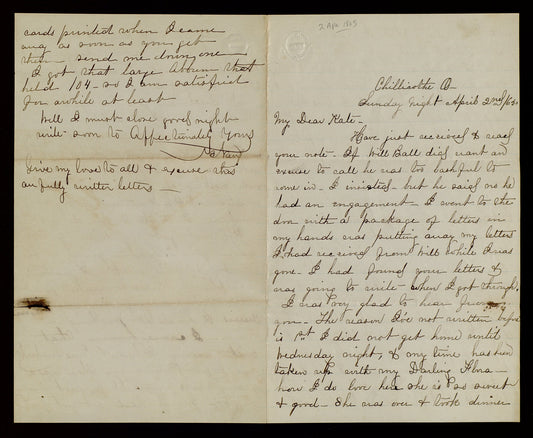 2 Apr. 1865
Chillicothe O-
Sunday night April 2nd/65-
My Dear Kate-
Have just received & read
your note- If Will Ball did want an
excuse to call he was too bashful to
come in- I insisted- but he said no he
had an engagement- I went to the
door with a package of letters in
my hands was putting away my letters
I had received from Will while I was
gone- I had found your letters &
was going to write- when I got through,
I was very glad to hear from
you- The reason I've not written before
is 1st I did not get home until
Wednesday night, & my time has been
taken up with my Darling Flora-
how I do love her she is so sweet
& good- She was over & took dinner
cards printed when I came
away as soon as you get
them send me down one
I got that large Album that
held 104- so I am satisfied
for awhile at least
Well I must close good night
write soon to Affectionately Yours
Give my love to all & excuse this
awfully written letter-